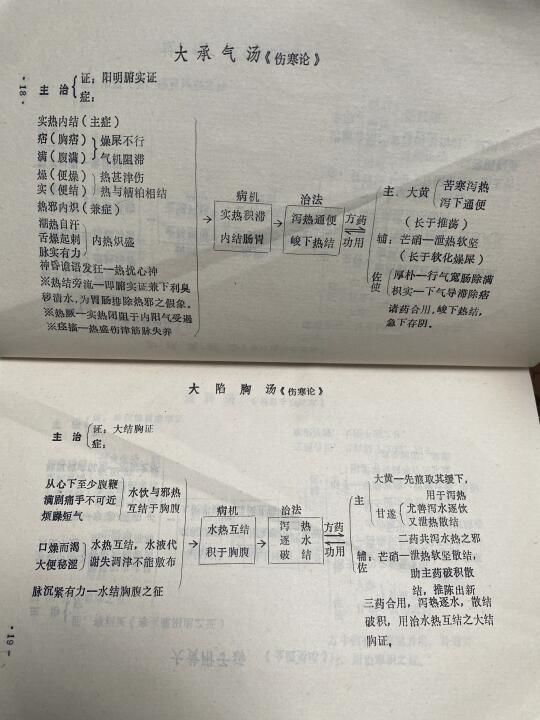 大承气汤《伤寒论》
主治 证：阳明腑实证
症：
实热内结（主症）
痞（胸痞） 燥屎不行
满（腹满） 气机阻滞
燥（便燥） 热甚津伤
实（便结） 热与糟粕相结
热邪内炽（兼症）
潮热自汗
舌燥起刺 内热炽盛
脉实有力
神昏谵语发狂—热扰心神
※热结旁流—即腑实证兼下利臭
秽清水，为胃肠排除热邪之假象。
※热厥—实热闭阻于内阳气受遏
※痉搐—热盛伤津筋脉失养
病机
实热积滞
内结肠胃
治法
泻热通便
峻下热结
方药
功用
主、大黄 苦寒泻热
泻下通便
（长于推荡）
辅：芒硝—泄热软坚
（长于软化燥屎）
佐使 厚朴—行气宽肠除满
枳实—下气导滞除痞
诸药合用，峻下热结，
急下存阴。
·18·
大陷胸汤《伤寒论》
主治 证：大结胸证
症：
从心下至少腹鞕
满剧痛手不可近
烦躁短气
水饮与邪热
互结于胸腹
口燥而渴
大便秘涩
水热互结，水液代
谢失调津不能敷布
脉沉紧有力—水结胸腹之征
病机
水热互结
积于胸腹
治法
泻热
逐水
破结
方药
功用
主
大黄—先煎取其缓下，
用于泻热
甘遂 尤善泻水逐饮
又泄热散结
二药共泻水热之邪
辅佐：芒硝—泄热软坚散结，
助主药破积散
结，推陈出新
三药合用，泻热逐水，散结
破积，用治水热互结之大结
胸证。
·19·